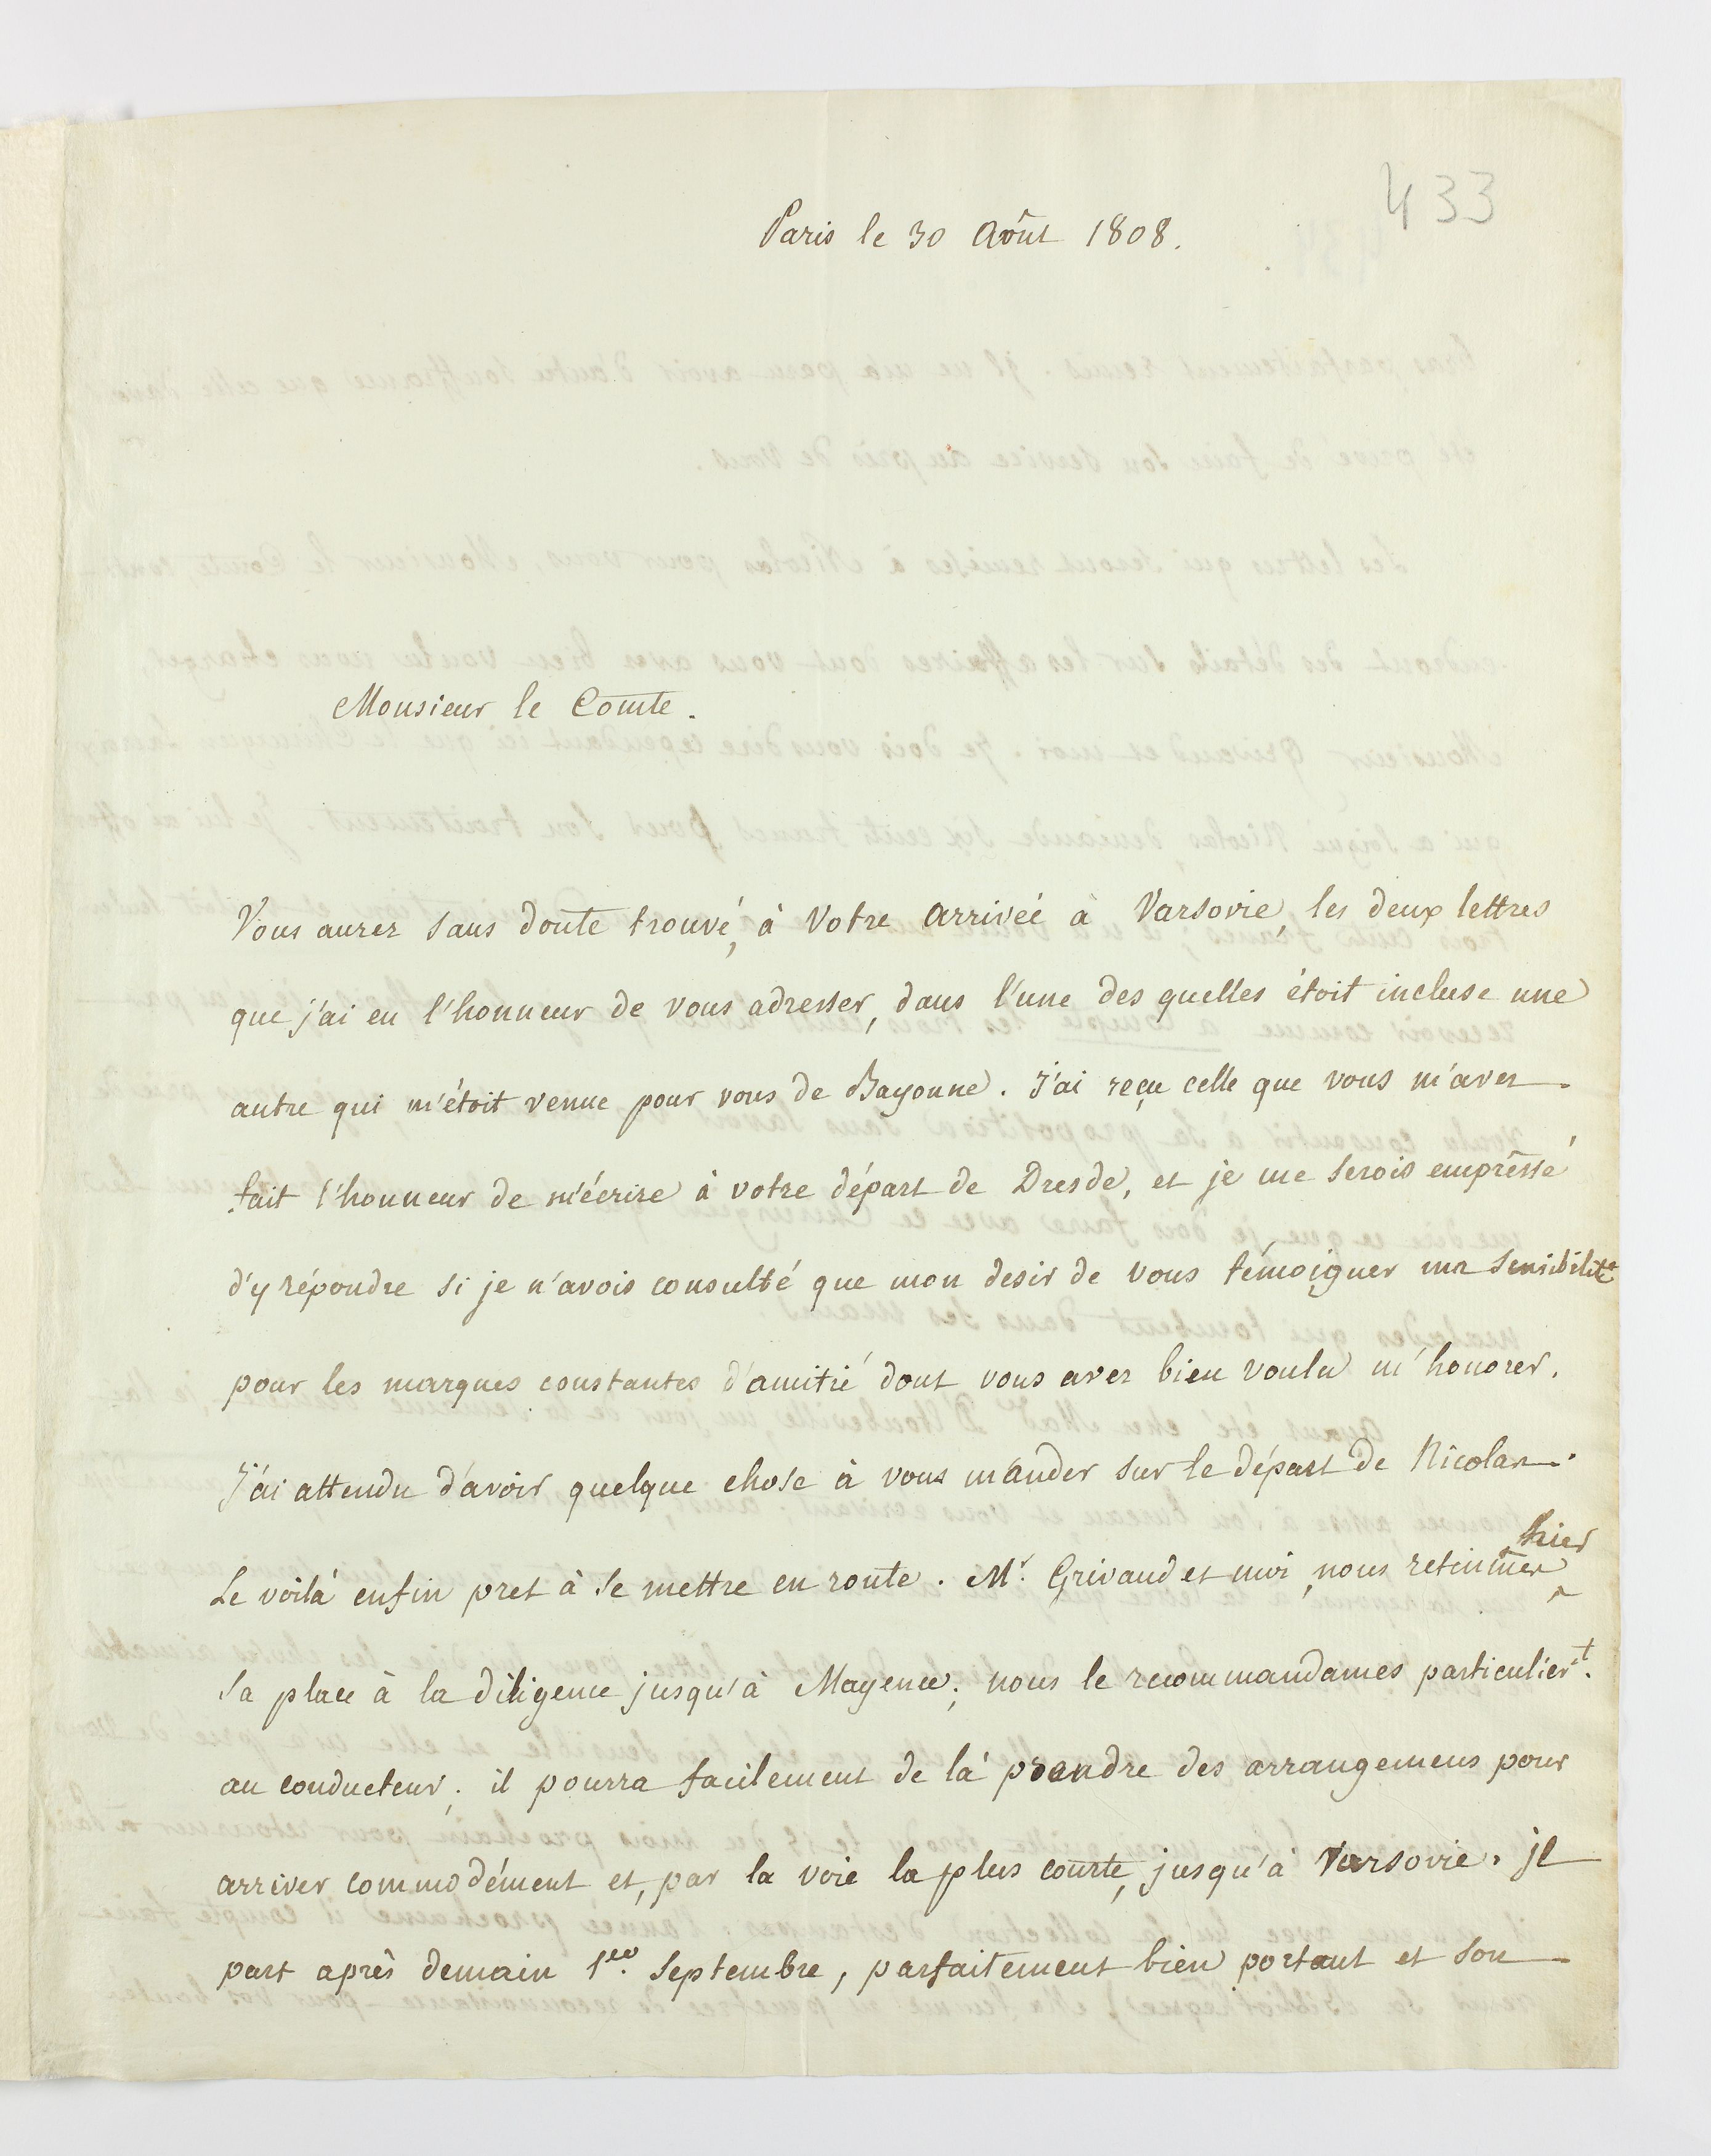 433
Paris le 30 Août 1808.
Monsieur le Comte.
Vous aurez sans doute trouvé, à Votre arrivée à Varsovie, les deux lettres
que j'ai eu l'honneur de vous adresser, dans l'une des quelles étoit incluse une
autre qui m'étoit venue pour vous de Bayonne. J'ai reçu celle que vous m'avez
fait l'honneur de m'écrire à votre départ de Dresde, et je me serois empressé
d'y répondre si je n'avois consulté que mon desir de vous témoigner ma sensibilité
pour les marques constantes d'amitié dont vous avez bien voulu m'honorer.
J'ai attendu d'avoir quelque chose à vous mander sur le départ de Nicolas.
hier
Le voilà enfin pret à se mettre en route. Mr. Grivaud et moi, nous retinmes
sa place à la diligence jusqu'à Mayence; nous le recommandames particuliert.
au conducteur; il pourra facilement de là prendre des arrangemens pour
arriver commodément et, par la voie la plus courte, jusqu'à Varsovie. Il
part après demain 1er. Septembre, parfaitement bien portant et son